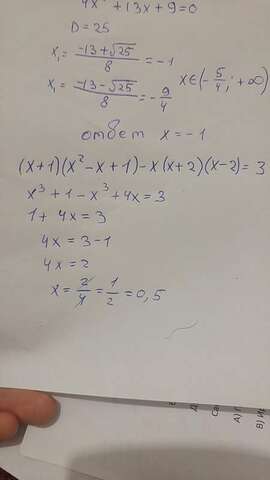 4x² + 13x + 9 = 0
D = 25
x₁ = (-13 + √25) / 8 = -1
x₁ = (-13 - √25) / 8 = -9/4 x ∈ (-5/4; +∞)
ответ x = -1
(x+1)(x² - x + 1) - x(x+2)(x-2) = 3
x³ + 1 - x³ + 4x = 3
1 + 4x = 3
4x = 3 - 1
4x = 2
x = 2/4 = 1/2 = 0,5
А) П
В) И